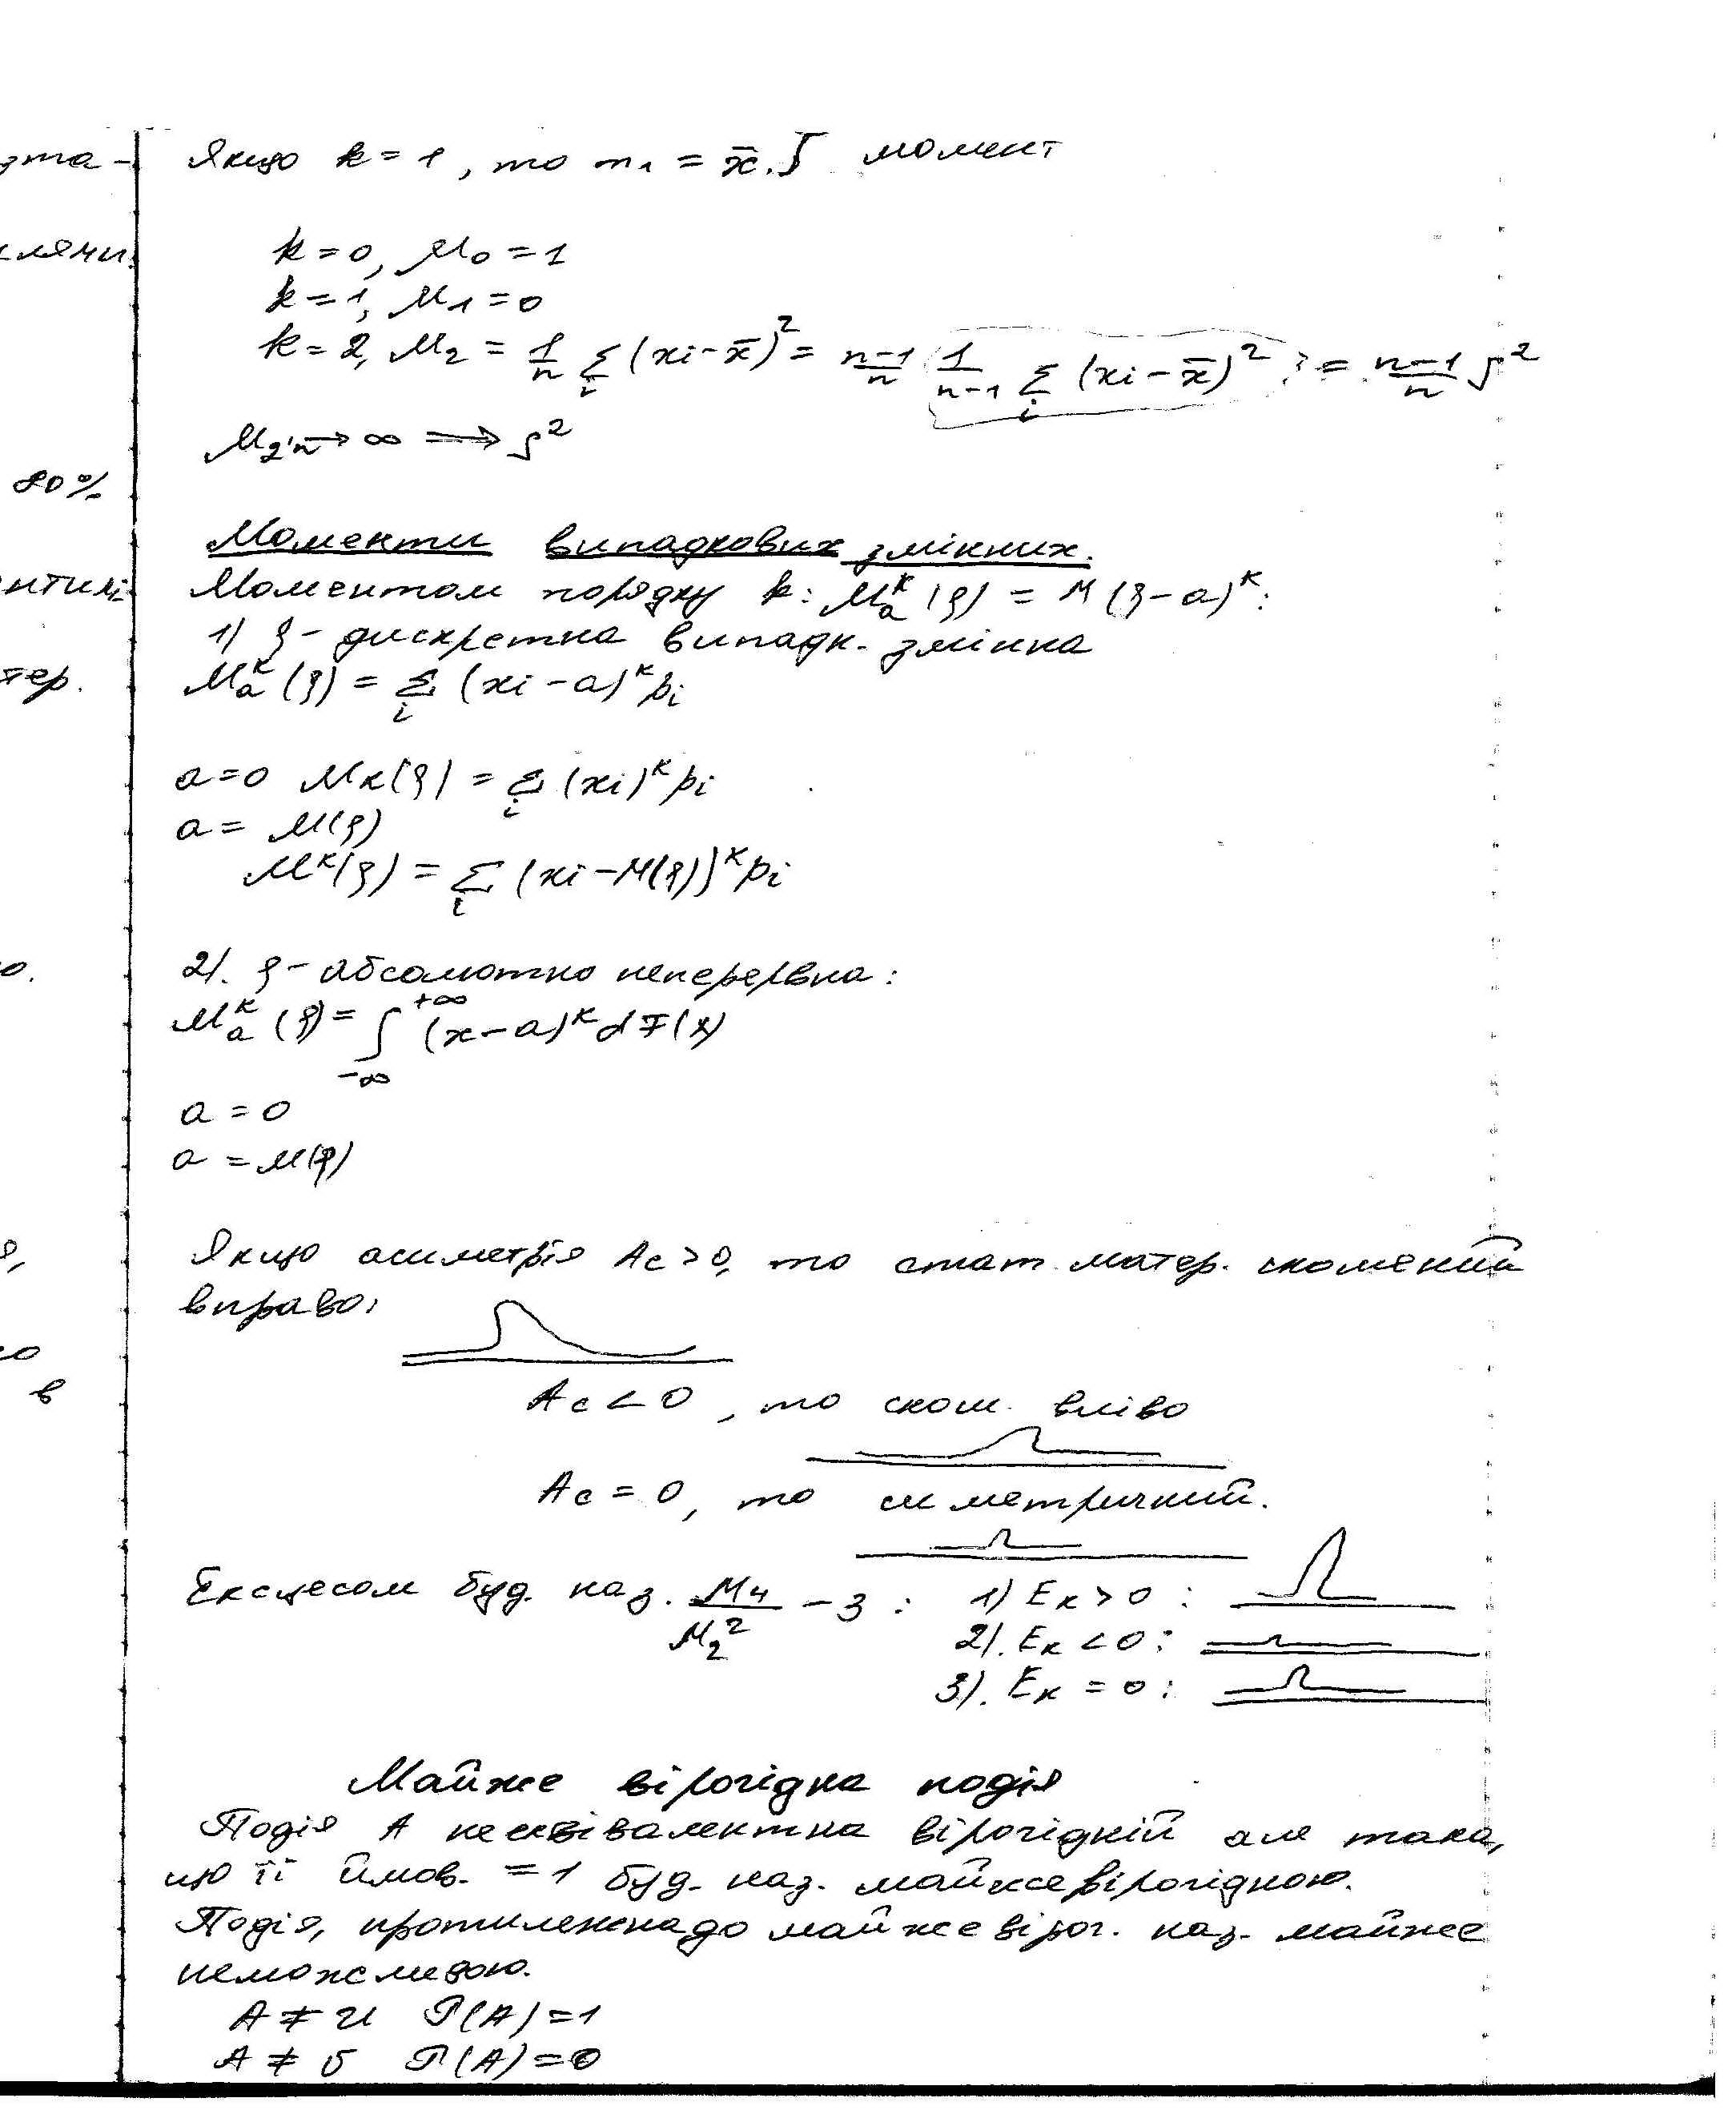 Якщо k = 1, то m₁ = x̄. ∫ момент
k = 0, M₀ = 1
k = 1, M₁ = 0
k = 2, M₂ = 1/n Σᵢ (xi - x̄)² = (n-1)/n (1/(n-1) Σᵢ (xi - x̄)²) = (n-1)/n S²
M₂, n → ∞ ⟹ S²
80%
Моменти випадкових змінних.
Моментом порядку k: Mₐᵏ(ξ) = M(ξ - a)ᵏ:
1) ξ - дискретна випадк. змінна
Mₐᵏ(ξ) = Σᵢ (xi - a)ᵏ pi
a = 0 Mк(ξ) = Σᵢ (xi)ᵏ pi
a = M(ξ)
Mᵏ(ξ) = Σᵢ (xi - M(ξ))ᵏ pi
2). ξ - абсолютно неперервна:
Mₐᵏ(ξ) = ∫₋∞⁺∞ (x - a)ᵏ dF(x)
a = 0
a = M(ξ)
Якщо асиметрія Ac > 0, то стат. матер. скошений
вправо:
Ac < 0, то скош. вліво
Ac = 0, то симетричний.
Ексцесом буд. наз. M₄/M₂² - 3 : 1) Eк > 0 :
2). Eк < 0 :
3). Eк = 0 :
Майже вірогідна подія
Подія A нееквівалентна вірогідній але така,
що її ймов. = 1 буд. наз. майжевірогідною.
Подія, протилежна до майже вірог. наз. майже
неможливою.
A ≠ U P(A) = 1
A ≠ ∅ P(A) = 0